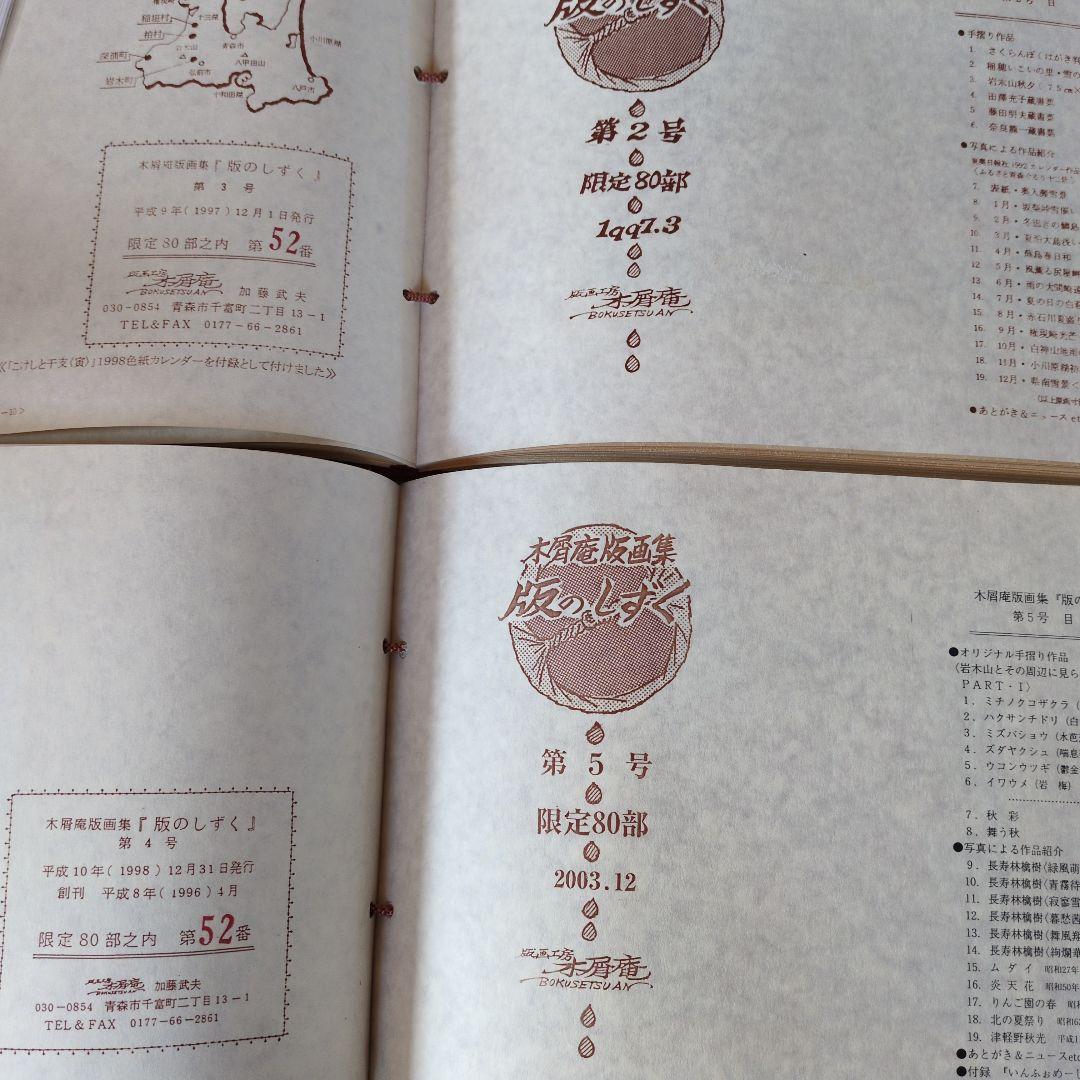 稲垣村
柏村
深浦町
岩木山
青森市
八甲田山
弘前市
岩木町
十和田湖
八戸市
小川原湖
木屑庵版画集『版のしずく』
第 3 号
平成9年(1997)12月1日発行
限定80部之内 第52番
版画工房 木屑庵 加藤武夫
BOKUSETSUAN
030-0854 青森市千富町二丁目13-1
TEL&FAX 0177-66-2861
《「こけしと干支(寅)」1998色紙カレンダーを付録として付けました》
-10>
版のしずく
第2号
限定80部
1997.3
版画工房 木屑庵
BOKUSETSUAN
●手摺り作品
1. さくらんぼ(はがき判
2. 稲穂いこいの里・雪の
3. 岩木山秋夕(7.5cm×
4. 田澤充子蔵書票
5. 藤田明夫蔵書票
6. 奈良龍一蔵書票
●写真による作品紹介
7. 表紙・奥入瀬雪景
8. 1月・
9. 2月・
10. 3月・
11. 4月・
12. 5月・
13. 6月・
14. 7月・夏の日の白
15. 8月・赤石川夏
16. 9月・権現崎光芒
17. 10月・白神山地
18. 11月・小川原湖初
19. 12月・県南雪景
●あとがき&ニュース etc
木屑庵版画集『版のしずく』
第 4 号
平成10年(1998)12月31日発行
創刊 平成8年(1996)4月
限定80部之内 第52番
版画工房 木屑庵 加藤武夫
BOKUSETSUAN
030-0854 青森市千富町二丁目13-1
TEL&FAX 0177-66-2861
木屑庵版画集
版のしずく
第 5 号
限定80部
2003.12
版画工房 木屑庵
BOKUSETSUAN
木屑庵版画集『版の
第5号 目
●オリジナル手摺り作品
(岩木山とその周辺に見ら
PART・I〉
1. ミチノクコザクラ(
2. ハクサンチドリ(白
3. ミズバショウ(水芭
4. ズダヤクシュ(喘息
5. ウコンウツギ(鬱金
6. イワウメ(岩 梅)
7. 秋 彩
8. 舞う秋
●写真による作品紹介
9. 長寿林檎樹(緑風萌
10. 長寿林檎樹(青霧待
11. 長寿林檎樹(寂寥雪
12. 長寿林檎樹(暮愁茜
13. 長寿林檎樹(舞風翔
14. 長寿林檎樹(絢爛華
15. ム ダ イ 昭和27年
16. 炎 天 花 昭和50年
17. りんご園の春 昭和
18. 北の夏祭り 昭和6
19. 津軽野秋光 平成1
●あとがき&ニュースetc
●付録 『いんふぉめーし